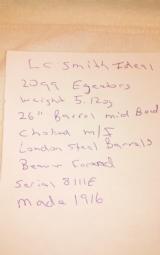 LC Smith Ideal
20ga Egectors
weight 5.12oz
26" Barrol mid Bow
Choked m/I
London Steel Barrals
Beaver Forend
Serial 8111E
Made 1916